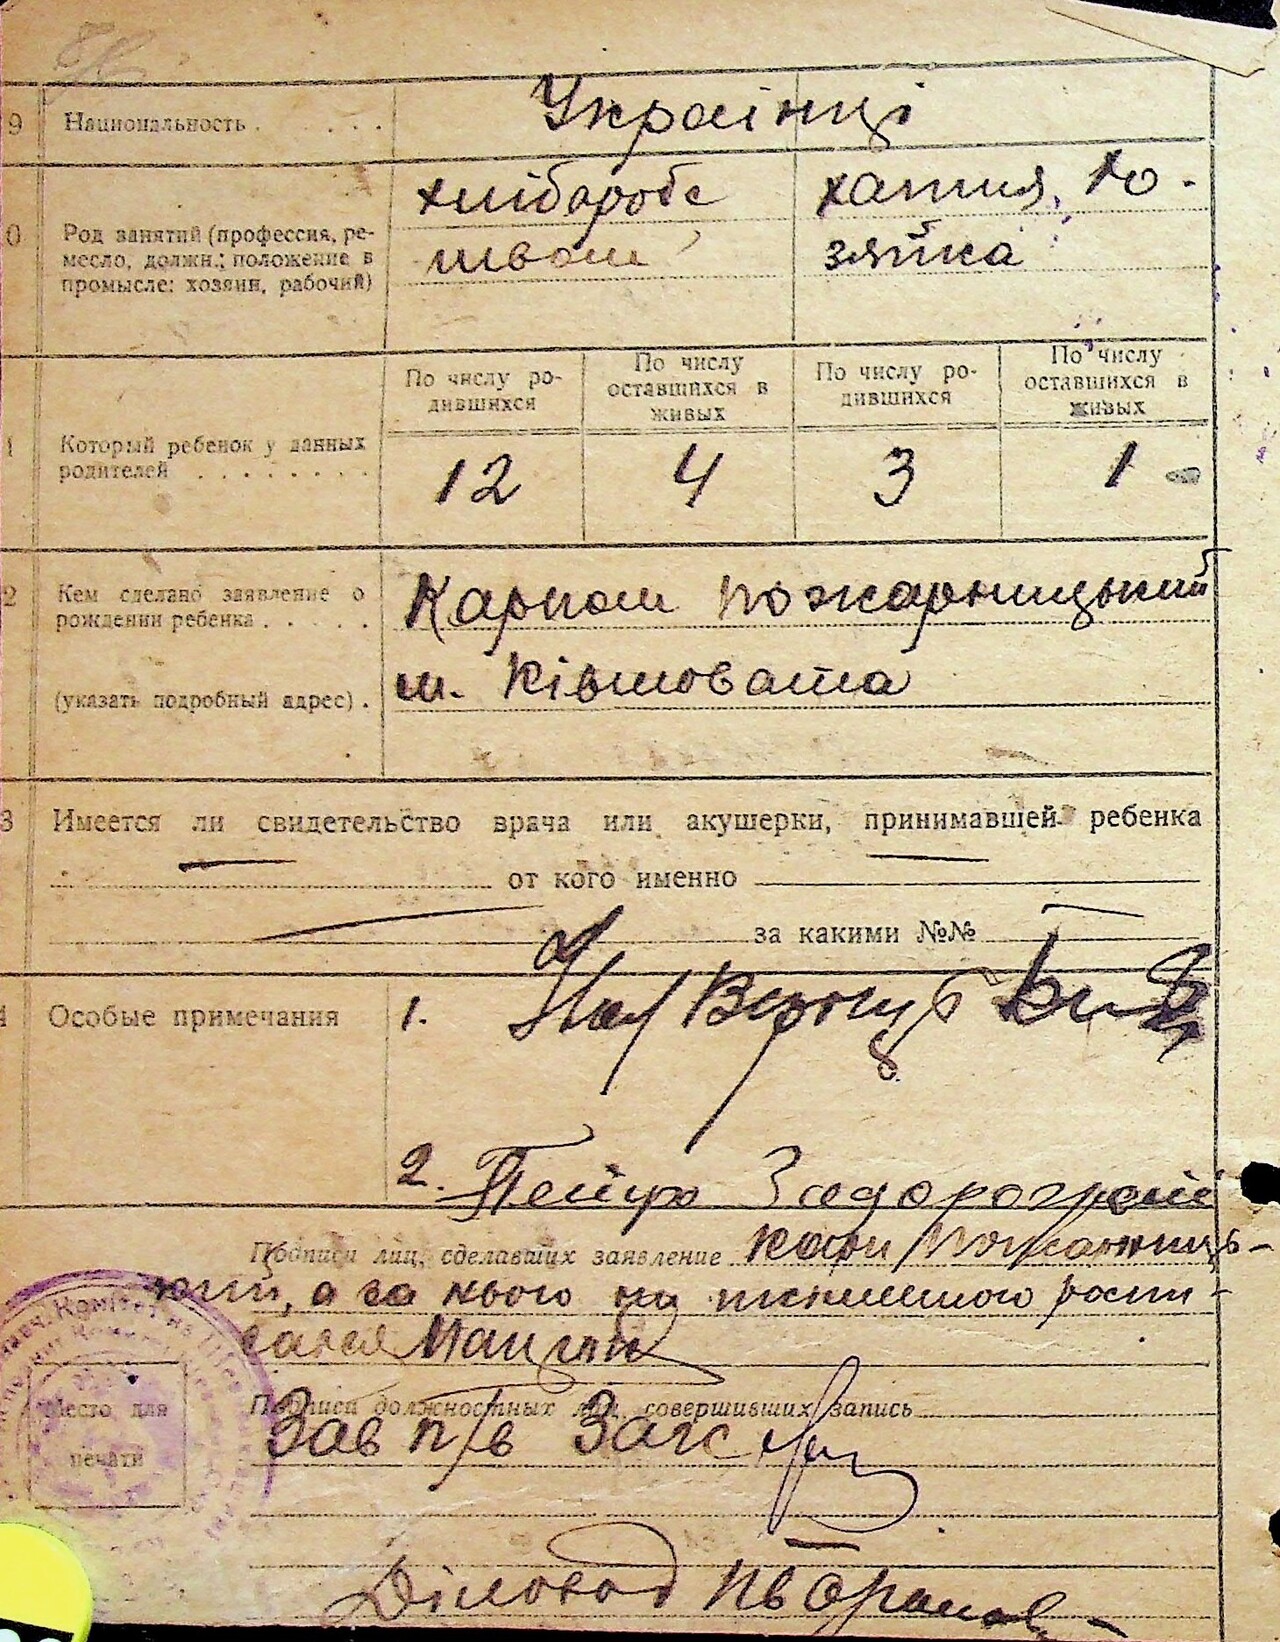 9 Национальность . . . . . Українці
0 Род занятий (профессия, ре-
месло, должн.; положение в
промысле: хозяин, рабочий)
хліборобс
твом
хатня, хо-
зяйка
По числу ро-
дившихся
По числу
оставшихся в
живых
По числу ро-
дившихся
По числу
оставшихся в
живых
1 Который ребенок у данных
родителей . . . . . . .
12 4 3 1
2 Кем сделано заявление о
рождении ребенка . . . . .
Карпом Пожарницький
(указать подробный адрес) . м. Ківшовата
3 Имеется ли свидетельство врача или акушерки, принимавшей ребенка
от кого именно
за какими №№
4 Особые примечания 1.
2. Петро Задорожній
Подписи лиц, сделавших заявление Карп Пожарниць-
кий, а за нього не письменного роспи-
сався
Подписи должностных лиц, совершивших запись
Зав п/в Загс
Место для
печати
Діловод